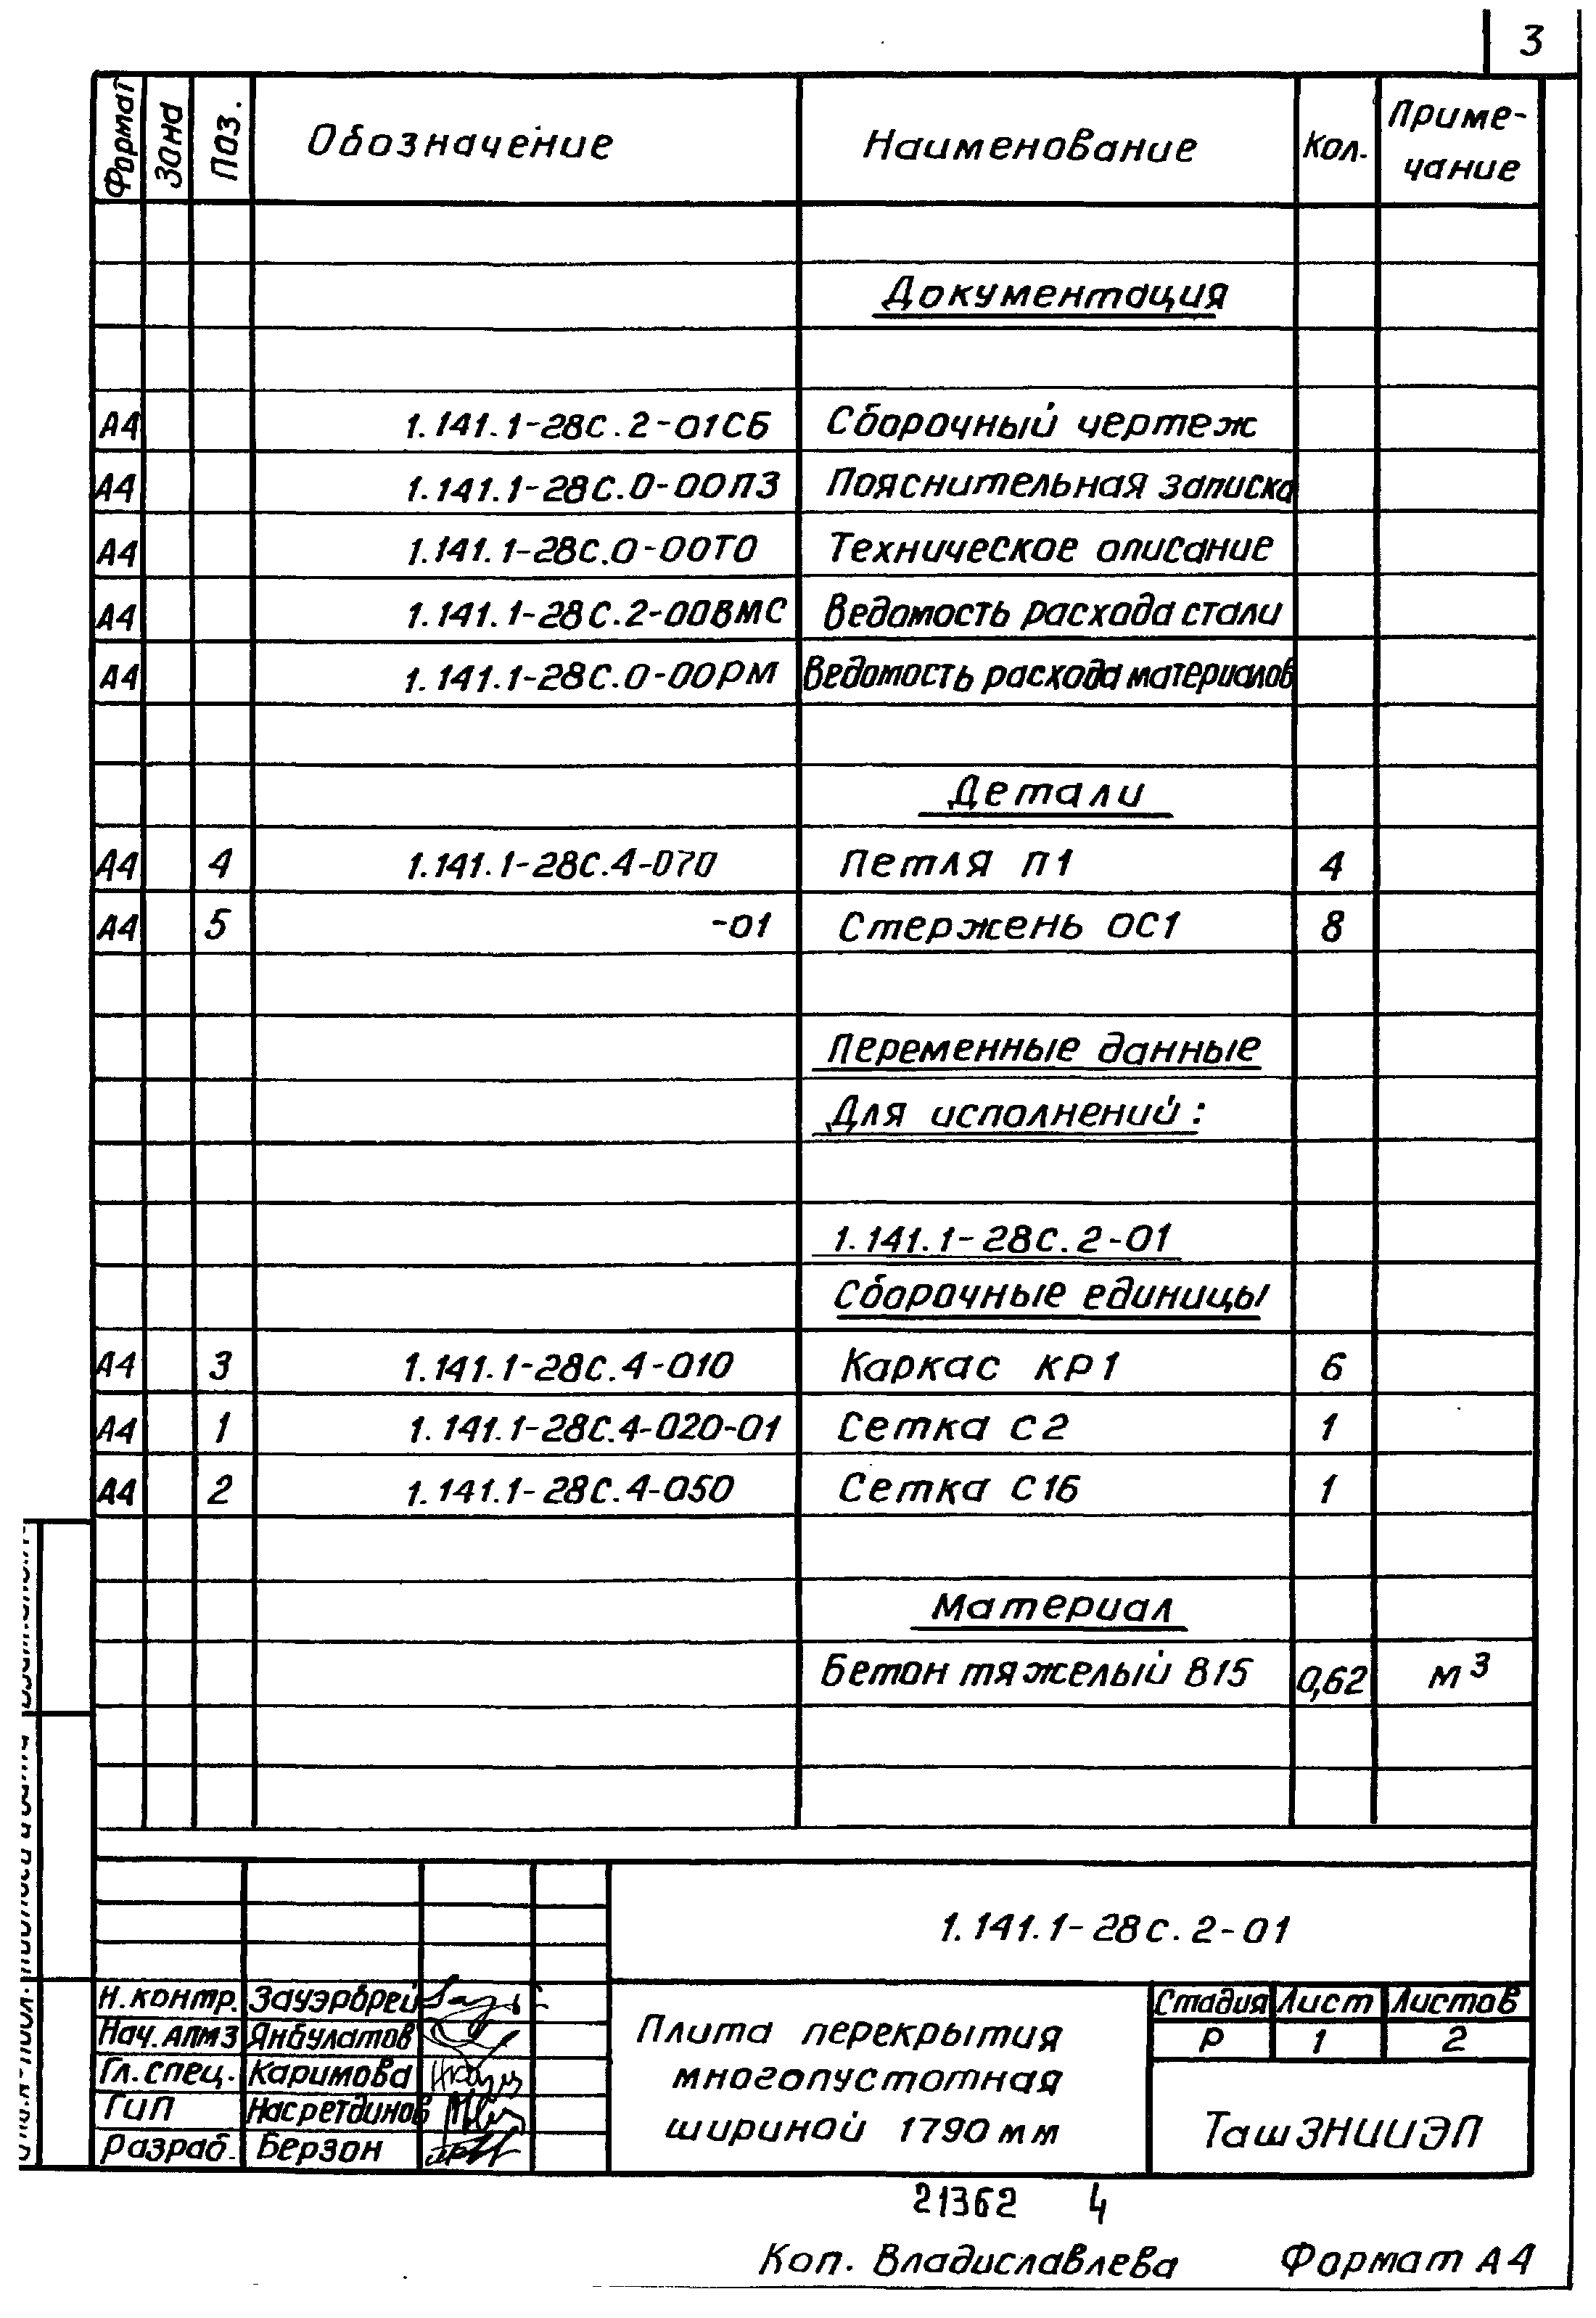 3
Формат Зона Поз. Обозначение Наименование Кол. Приме-
чание
Документация
А4 1.141.1-28С.2-01СБ Сборочный чертеж
А4 1.141.1-28С.0-00ПЗ Пояснительная записка
А4 1.141.1-28С.0-00ТО Техническое описание
А4 1.141.1-28С.2-00ВМС Ведомость расхода стали
А4 1.141.1-28С.0-00РМ Ведомость расхода материалов
Детали
А4 4 1.141.1-28С.4-070 Петля П1 4
А4 5 -01 Стержень ОС1 8
Переменные данные
Для исполнений:
1.141.1-28С.2-01
Сборочные единицы
А4 3 1.141.1-28С.4-010 Каркас КР1 6
А4 1 1.141.1-28С.4-020-01 Сетка С2 1
А4 2 1.141.1-28С.4-050 Сетка С16 1
Материал
Бетон тяжелый В15 0,62 м³
1.141.1-28С.2-01
Н.контр. Зауэрбрей
Нач.АПМ3 Янбулатов
Гл.спец. Каримова
ГиП Насретдинов
Разраб. Берзон
Плита перекрытия
многопустотная
шириной 1790мм
Стадия Лист Листов
Р 1 2
ТашЗНИИЭП
21362 4
Коп. Владиславлева Формат А4